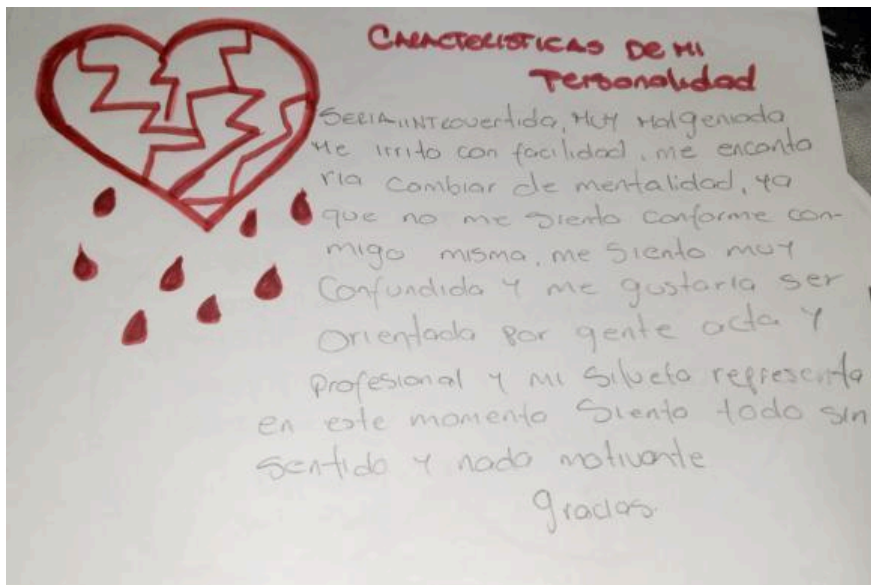 CARACTERISTICAS DE MI
Personalidad
SERIA, INTROVERTIDA, MUY Malgeniada
Me irrito con facilidad, me encanta
ria cambiar de mentalidad, ya
que no me siento conforme con-
migo misma, me siento muy
Confundida y me gustaria ser
Orientada por gente acta y
profesional y mi silueta representa
en este momento Siento todo sin
sentido y nada motivante
gracias.